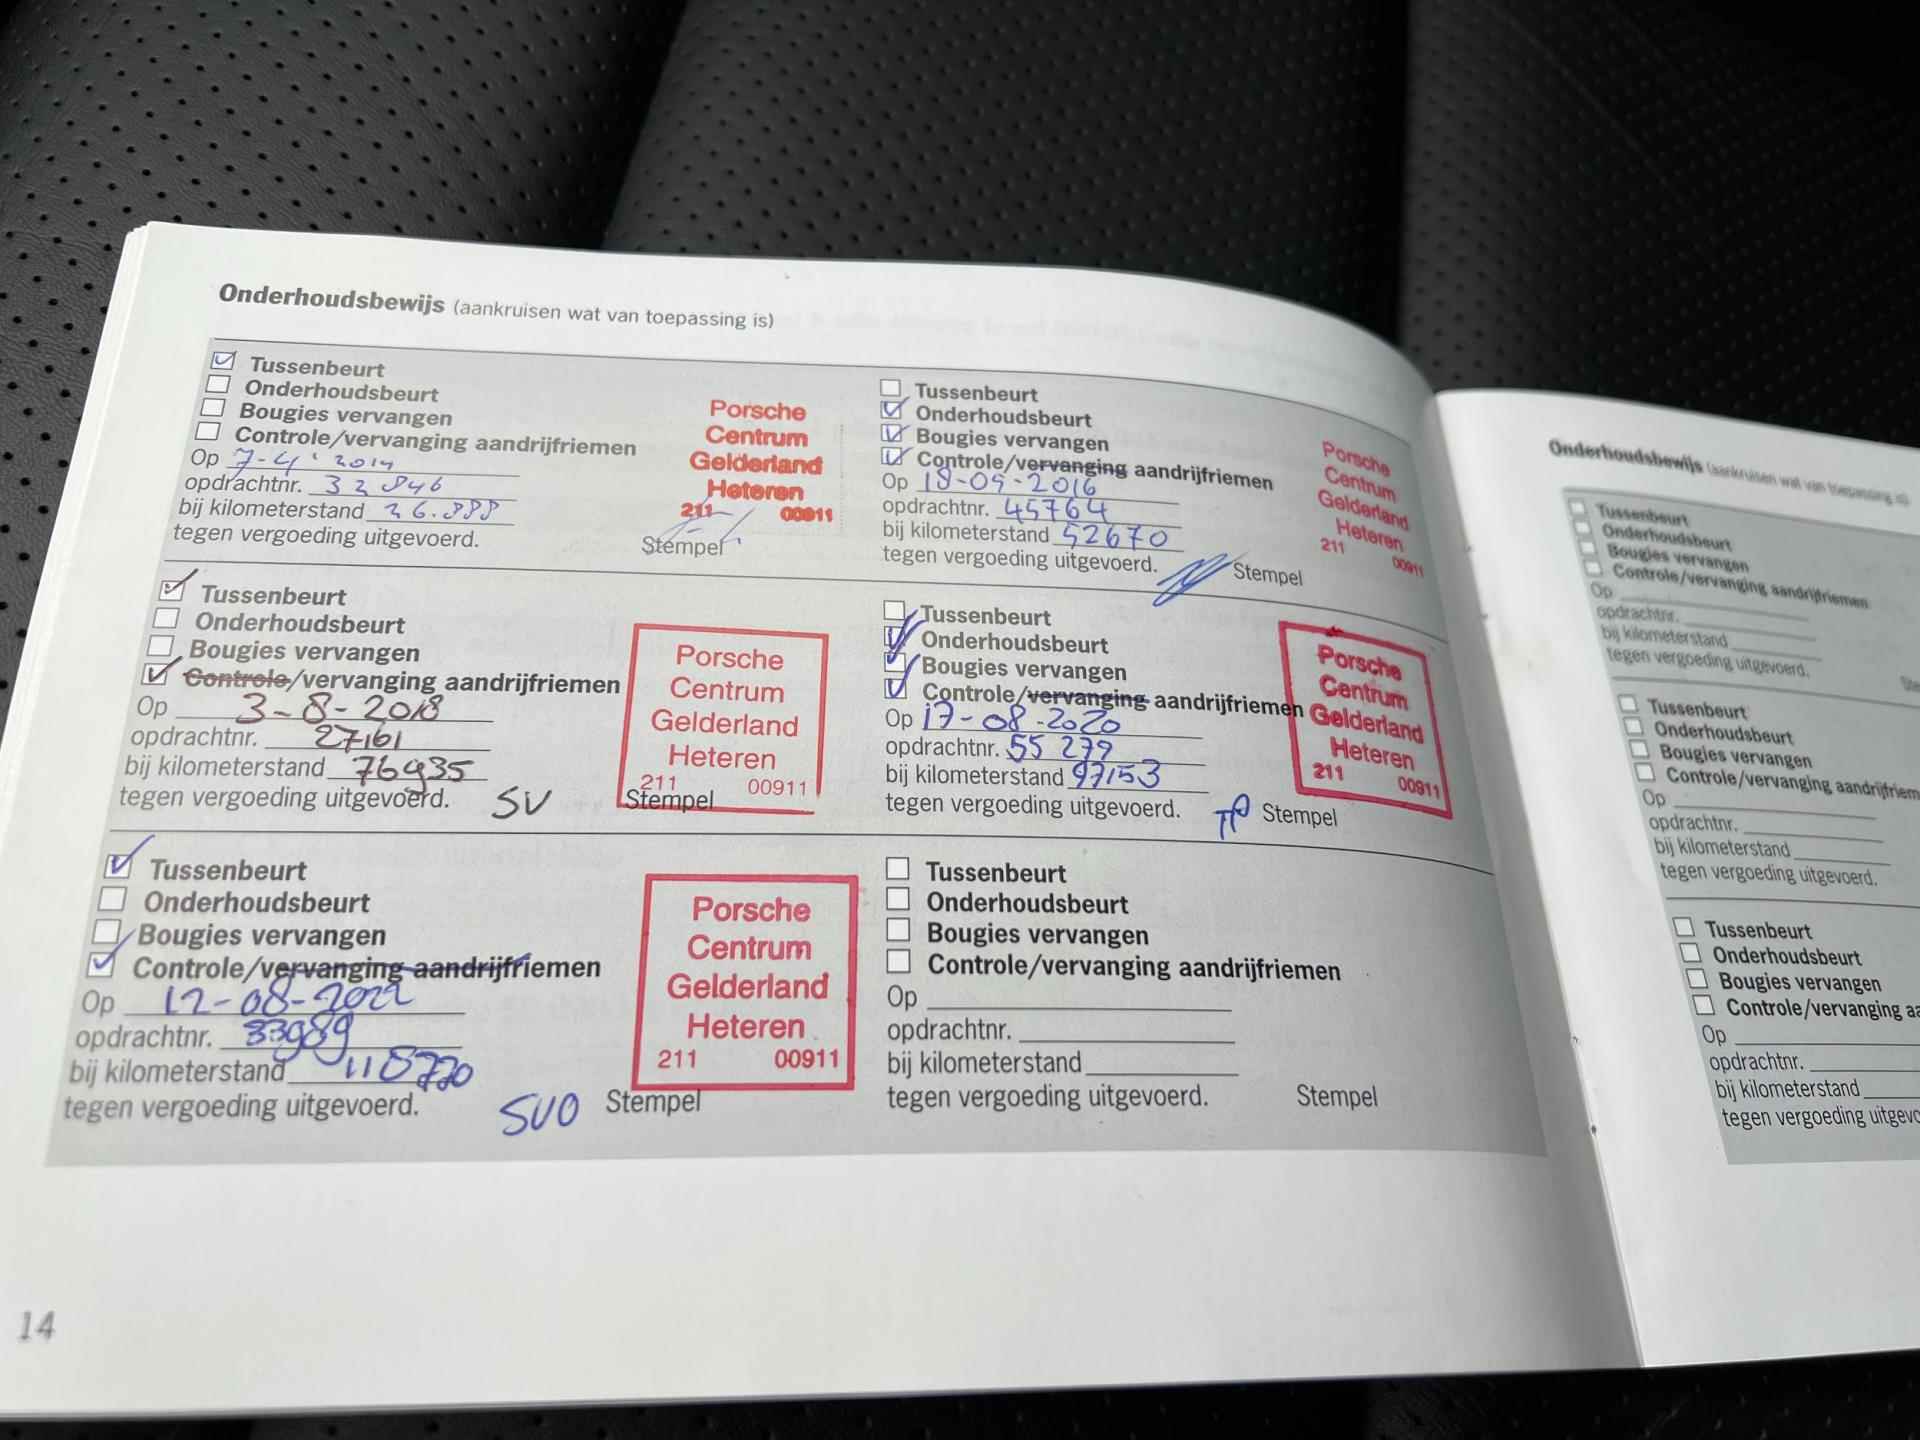 Onderhoudsbewijs (aankruisen wat van toepassing is)
Tussenbeurt
Onderhoudsbeurt
Bougies vervangen
Controle/vervanging aandrijfriemen
Op 7-4-2014
opdrachtnr. 32846
bij kilometerstand 26.888
tegen vergoeding uitgevoerd.
Porsche
Centrum
Gelderland
Heteren
211 00911
Stempel
Tussenbeurt
Onderhoudsbeurt
Bougies vervangen
Controle/vervanging aandrijfriemen
Op 18-09-2016
opdrachtnr. 45764
bij kilometerstand 52670
tegen vergoeding uitgevoerd.
Porsche
Centrum
Gelderland
Heteren
211 00911
Stempel
Tussenbeurt
Onderhoudsbeurt
Bougies vervangen
Controle/vervanging aandrijfriemen
Op 3-8-2018
opdrachtnr. 27161
bij kilometerstand 76935
tegen vergoeding uitgevoerd. SV
Porsche
Centrum
Gelderland
Heteren
211 00911
Stempel
Tussenbeurt
Onderhoudsbeurt
Bougies vervangen
Controle/vervanging aandrijfriemen
Op 17-08-2020
opdrachtnr. 55 279
bij kilometerstand 97153
tegen vergoeding uitgevoerd. TP
Porsche
Centrum
Gelderland
Heteren
211 00911
Stempel
Tussenbeurt
Onderhoudsbeurt
Bougies vervangen
Controle/vervanging aandrijfriemen
Op 12-08-2022
opdrachtnr. 33989
bij kilometerstand 118770
tegen vergoeding uitgevoerd. SVO
Porsche
Centrum
Gelderland
Heteren
211 00911
Stempel
Tussenbeurt
Onderhoudsbeurt
Bougies vervangen
Controle/vervanging aandrijfriemen
Op
opdrachtnr.
bij kilometerstand
tegen vergoeding uitgevoerd.
Stempel
14
Onderhoudsbewijs (aankruisen wat van toepassing is)
Tussenbeurt
Onderhoudsbeurt
Bougies vervangen
Controle/vervanging aandrijfriemen
Op
opdrachtnr.
bij kilometerstand
tegen vergoeding uitgevoerd.
Ste
Tussenbeurt
Onderhoudsbeurt
Bougies vervangen
Controle/vervanging aandrijfriem
Op
opdrachtnr.
bij kilometerstand
tegen vergoeding uitgevoerd.
Tussenbeurt
Onderhoudsbeurt
Bougies vervangen
Controle/vervanging aa
Op
opdrachtnr.
bij kilometerstand
tegen vergoeding uitgevo